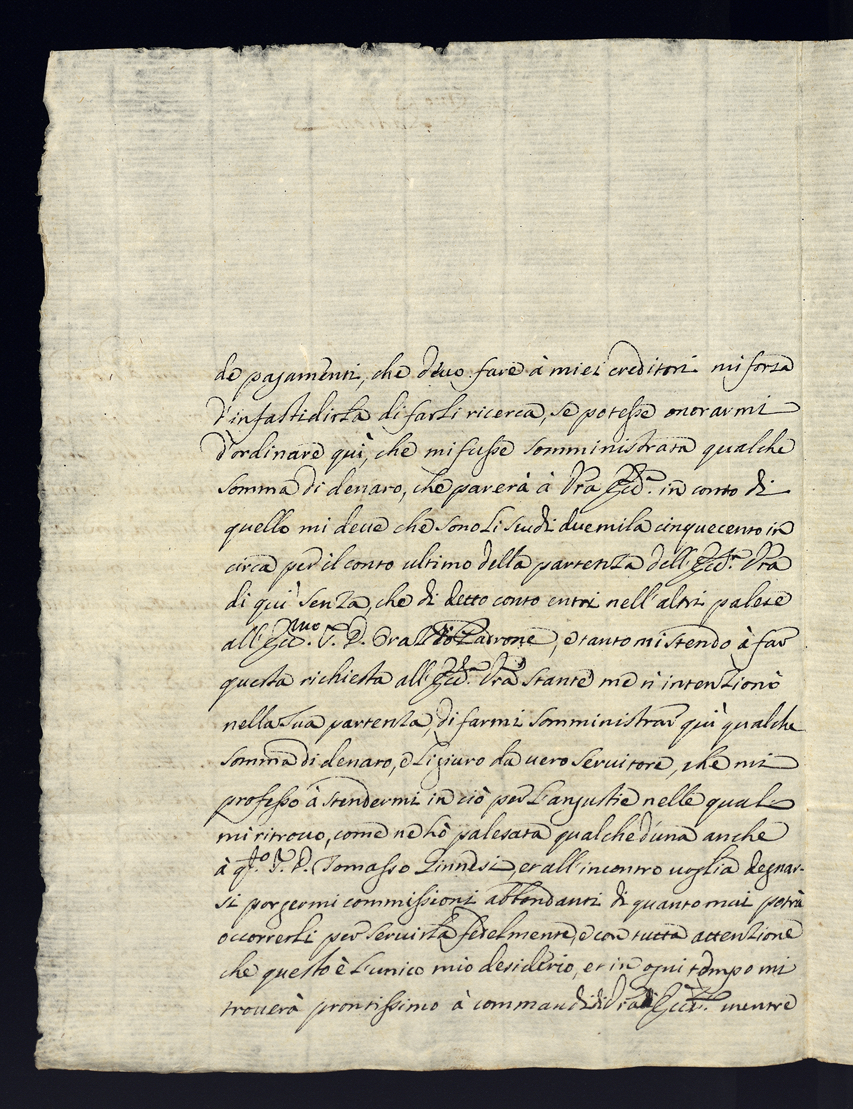 de pagamenti, che devo fare à miei creditori mi forza
d'infastidirla di farli ricerca, se potesse onorarmi
d'ordinare quì, che mi fusse somministrata qualche
somma di denaro, che parerà à Vra Ecc.ª in conto di
quello mi deve che sono li scudi duemila cinquecento in
circa per il conto ultimo della partenza dell'Ecc.ª Vra
di quì senza, che di detto conto entri nell'altri palese
all'Ecc.mo S. D. Padrone, e tanto mi stendo à far
questa richiesta all'Ecc.ª Vrà stante me n'intenzionò
nella sua partenza, di farmi somministrar quì qualche
somma di denaro, e li giuro da vero servitore, che mi
professo à stendermi in ciò per l'angustie nelle quali
mi ritrovo, come ne hò palesata qualched'una anche
à q.to S. D. Tomasso, et all'incontro voglia degnar-
si porgermi commissioni abbondanti di quanto mai potrà
occorrerli per servirla fedelmente, e con tutta attenzione
che questo è l'unico mio desiderio, et in ogni tempo mi
troverà prontissimo à commandi di Vra Ecc.ª mentre